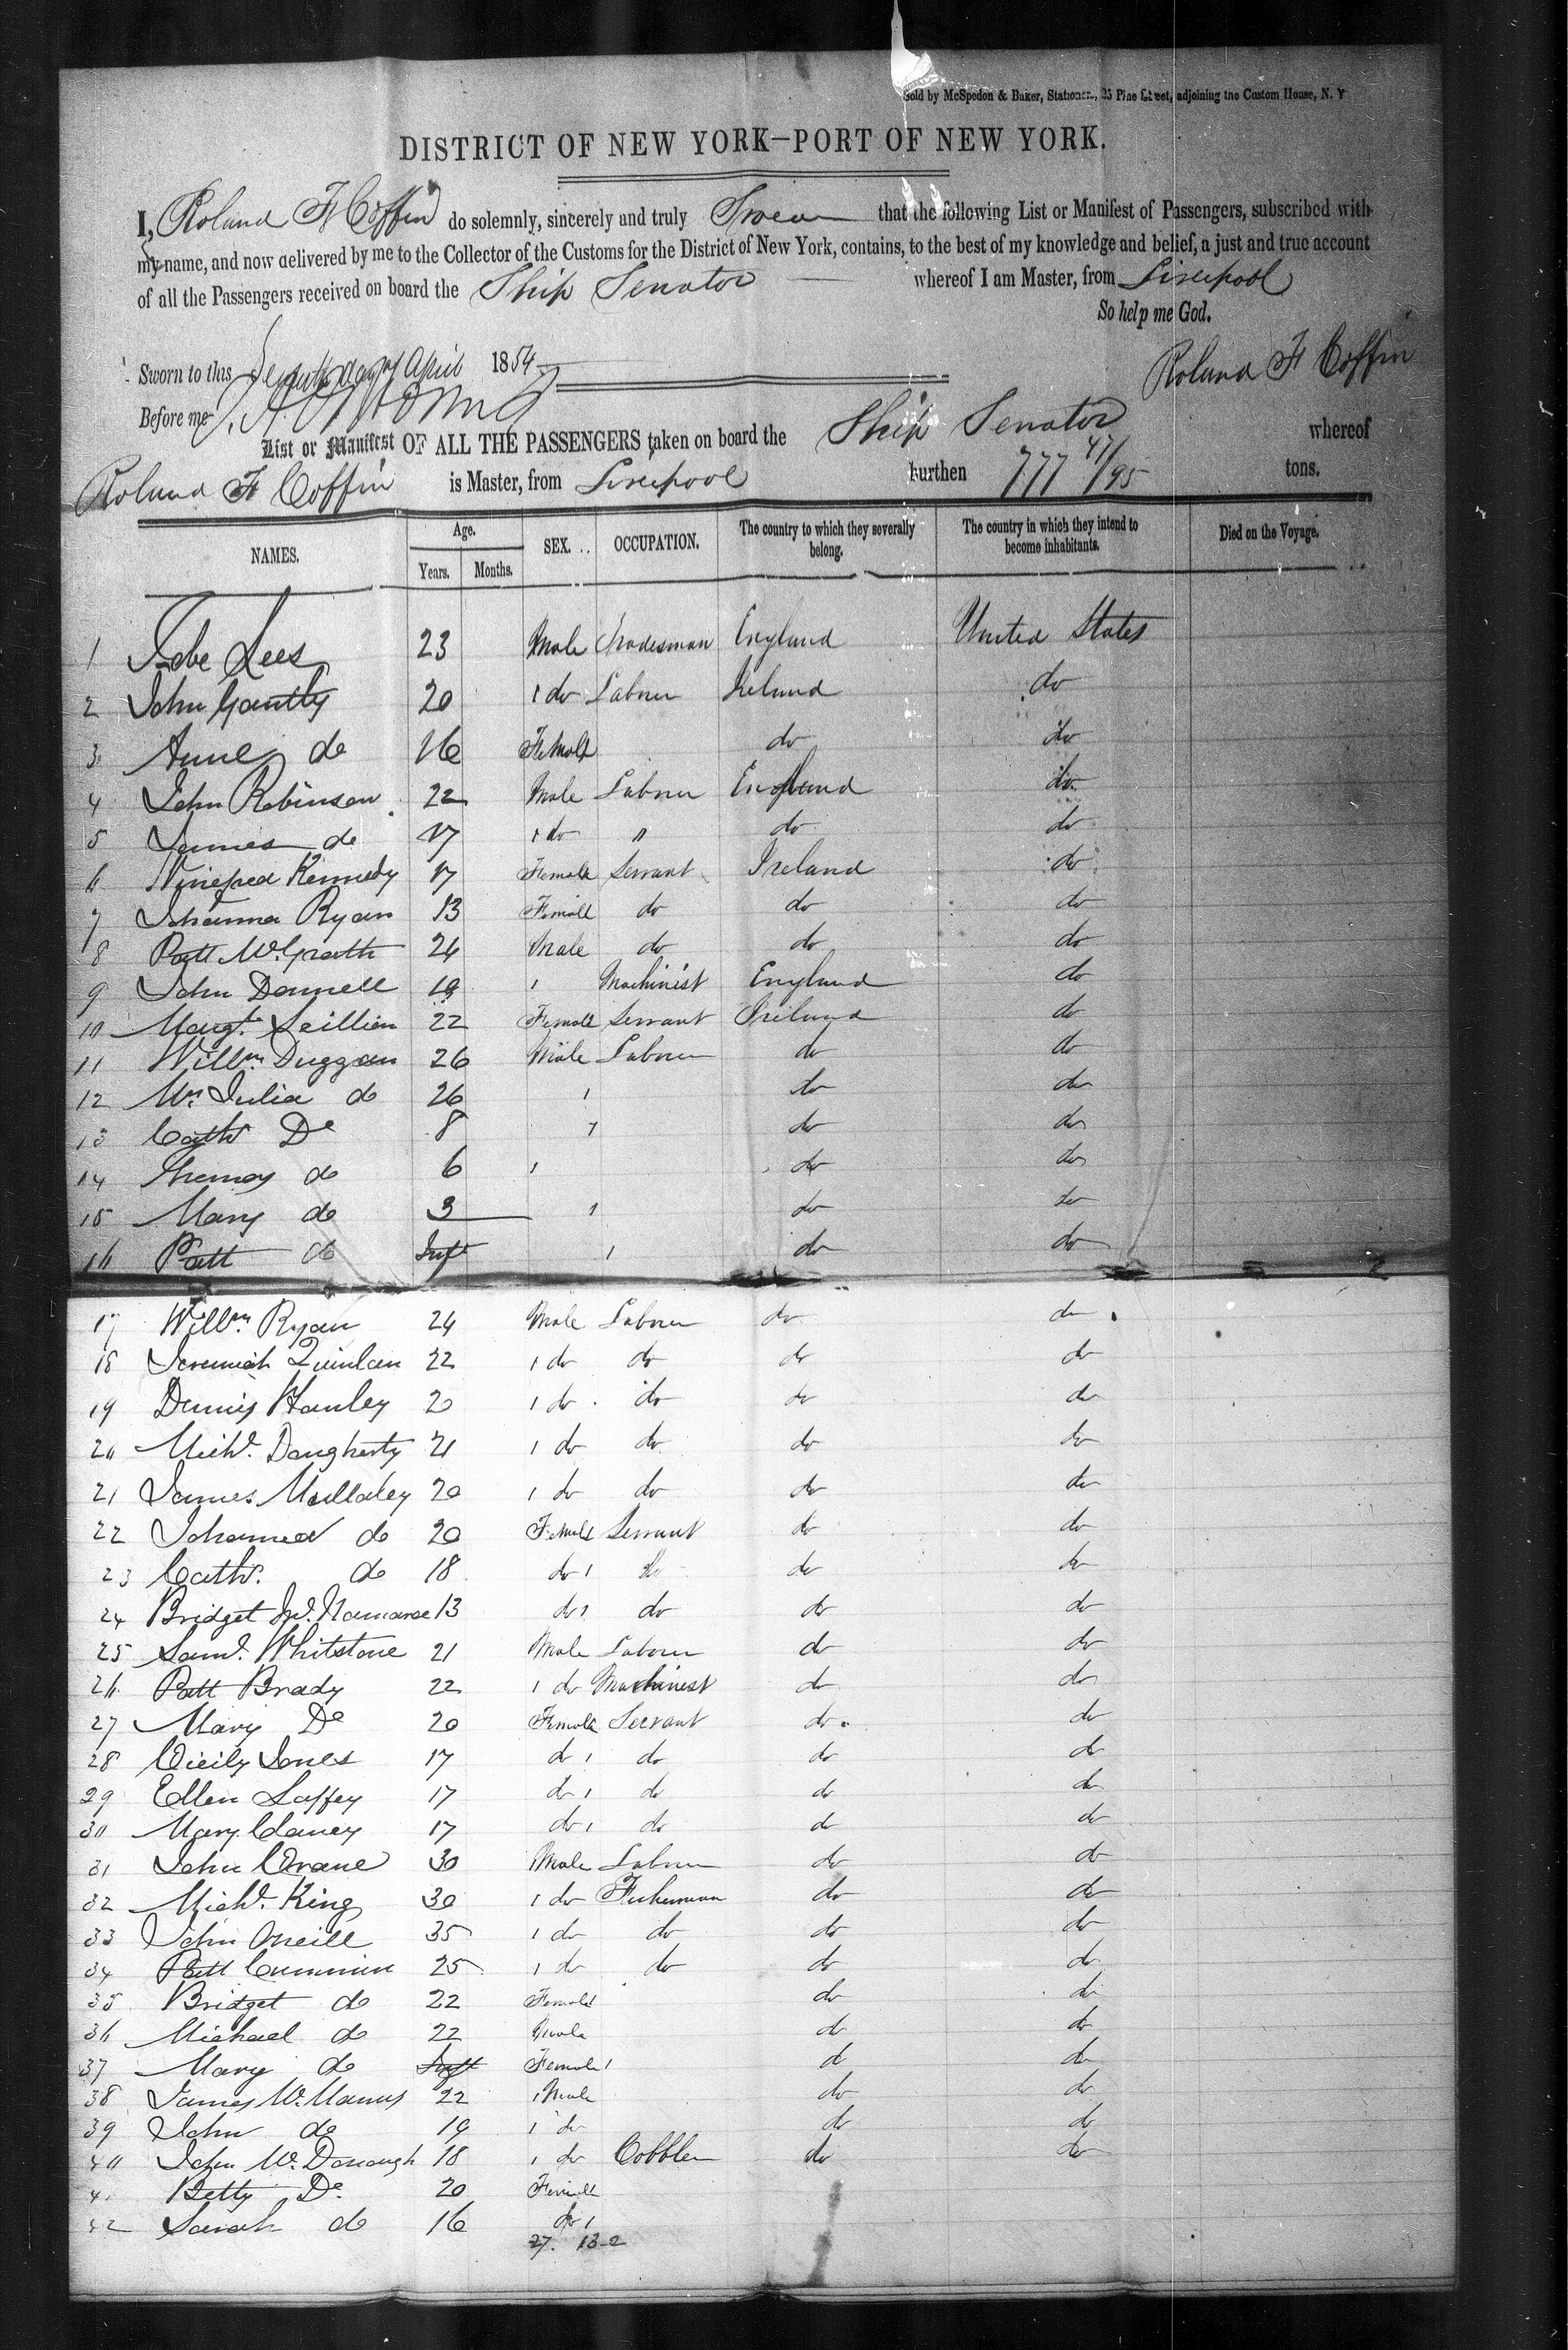 Sold by McSpedon & Baker, Stationers, 25 Pine Street, adjoining the Custom House, N. Y
DISTRICT OF NEW YORK—PORT OF NEW YORK.
I, Roland F Coffin do solemnly, sincerely and truly Swear that the following List or Manifest of Passengers, subscribed with
my name, and now delivered by me to the Collector of the Customs for the District of New York, contains, to the best of my knowledge and belief, a just and true account
of all the Passengers received on board the Ship Senator whereof I am Master, from Liverpool
So help me God.
Sworn to this day of April 1854
Roland F Coffin
Before me
List or Manifest OF ALL THE PASSENGERS taken on board the Ship Senator whereof
Roland F Coffin is Master, from Liverpool burthen 777 47/95 tons.
NAMES. Age. Years. Months. SEX. OCCUPATION. The country to which they severally belong. The country in which they intend to become inhabitants. Died on the Voyage.
1 Lees 23 Male Tradesman England United States
2 John Gantly 20 1 do Labour Ireland do
3 Anne do 16 Female do do
4 John Robinson 22 Male Labour England do
5 James do 17 1 do " do do
6 Winefred Kennedy 17 Female Servant Ireland do
7 Johanna Ryan 13 Female do do do
8 Patt McGrath 24 Male do do do
9 John Donnell 19 1 Machinist England do
10 Margt 22 Female Servant Ireland do
11 Willm Duggan 26 Male Labour do do
12 Mrs Julia do 26 1 do do
13 Cath Do 8 1 do do
14 Thomas do 6 1 do do
15 Mary do 3 1 do do
16 Patt do Inft 1 do do
17 Willm Ryan 24 Male Labour do do
18 Jeremiah Quinlan 22 1 do do do do
19 Dennis Hanley 20 1 do do do do
20 Michl Daugherty 21 1 do do do do
21 James Mullaley 20 1 do do do do
22 Johanna do 20 Female Servant do do
23 Cath. do 18 do 1 do do do
24 Bridget McNamara 13 do 1 do do do
25 Saml Whitstone 21 Male Labour do do
26 Patt Brady 22 1 do Machinist do do
27 Mary Do 20 Female Servant do do
28 Cicily Jones 17 do 1 do do do
29 Ellen Laffey 17 do 1 do do do
30 Mary Clancy 17 do 1 do do do
31 John Crane 30 Male Labour do do
32 Michl King 30 1 do Fisherman do do
33 John Oneill 35 1 do do do do
34 Patt Cummin 25 1 do do do do
35 Bridget do 22 Female do do
36 Michael do 22 Male do do
37 Mary do Inft Female 1 do do
38 James McManus 22 1 Male do do
39 John do 19 1 do do do
40 John McDonough 18 1 do Cobbler do do
41 Betty Do 20 Female
42 Sarah do 16 do 1
27. 13-2